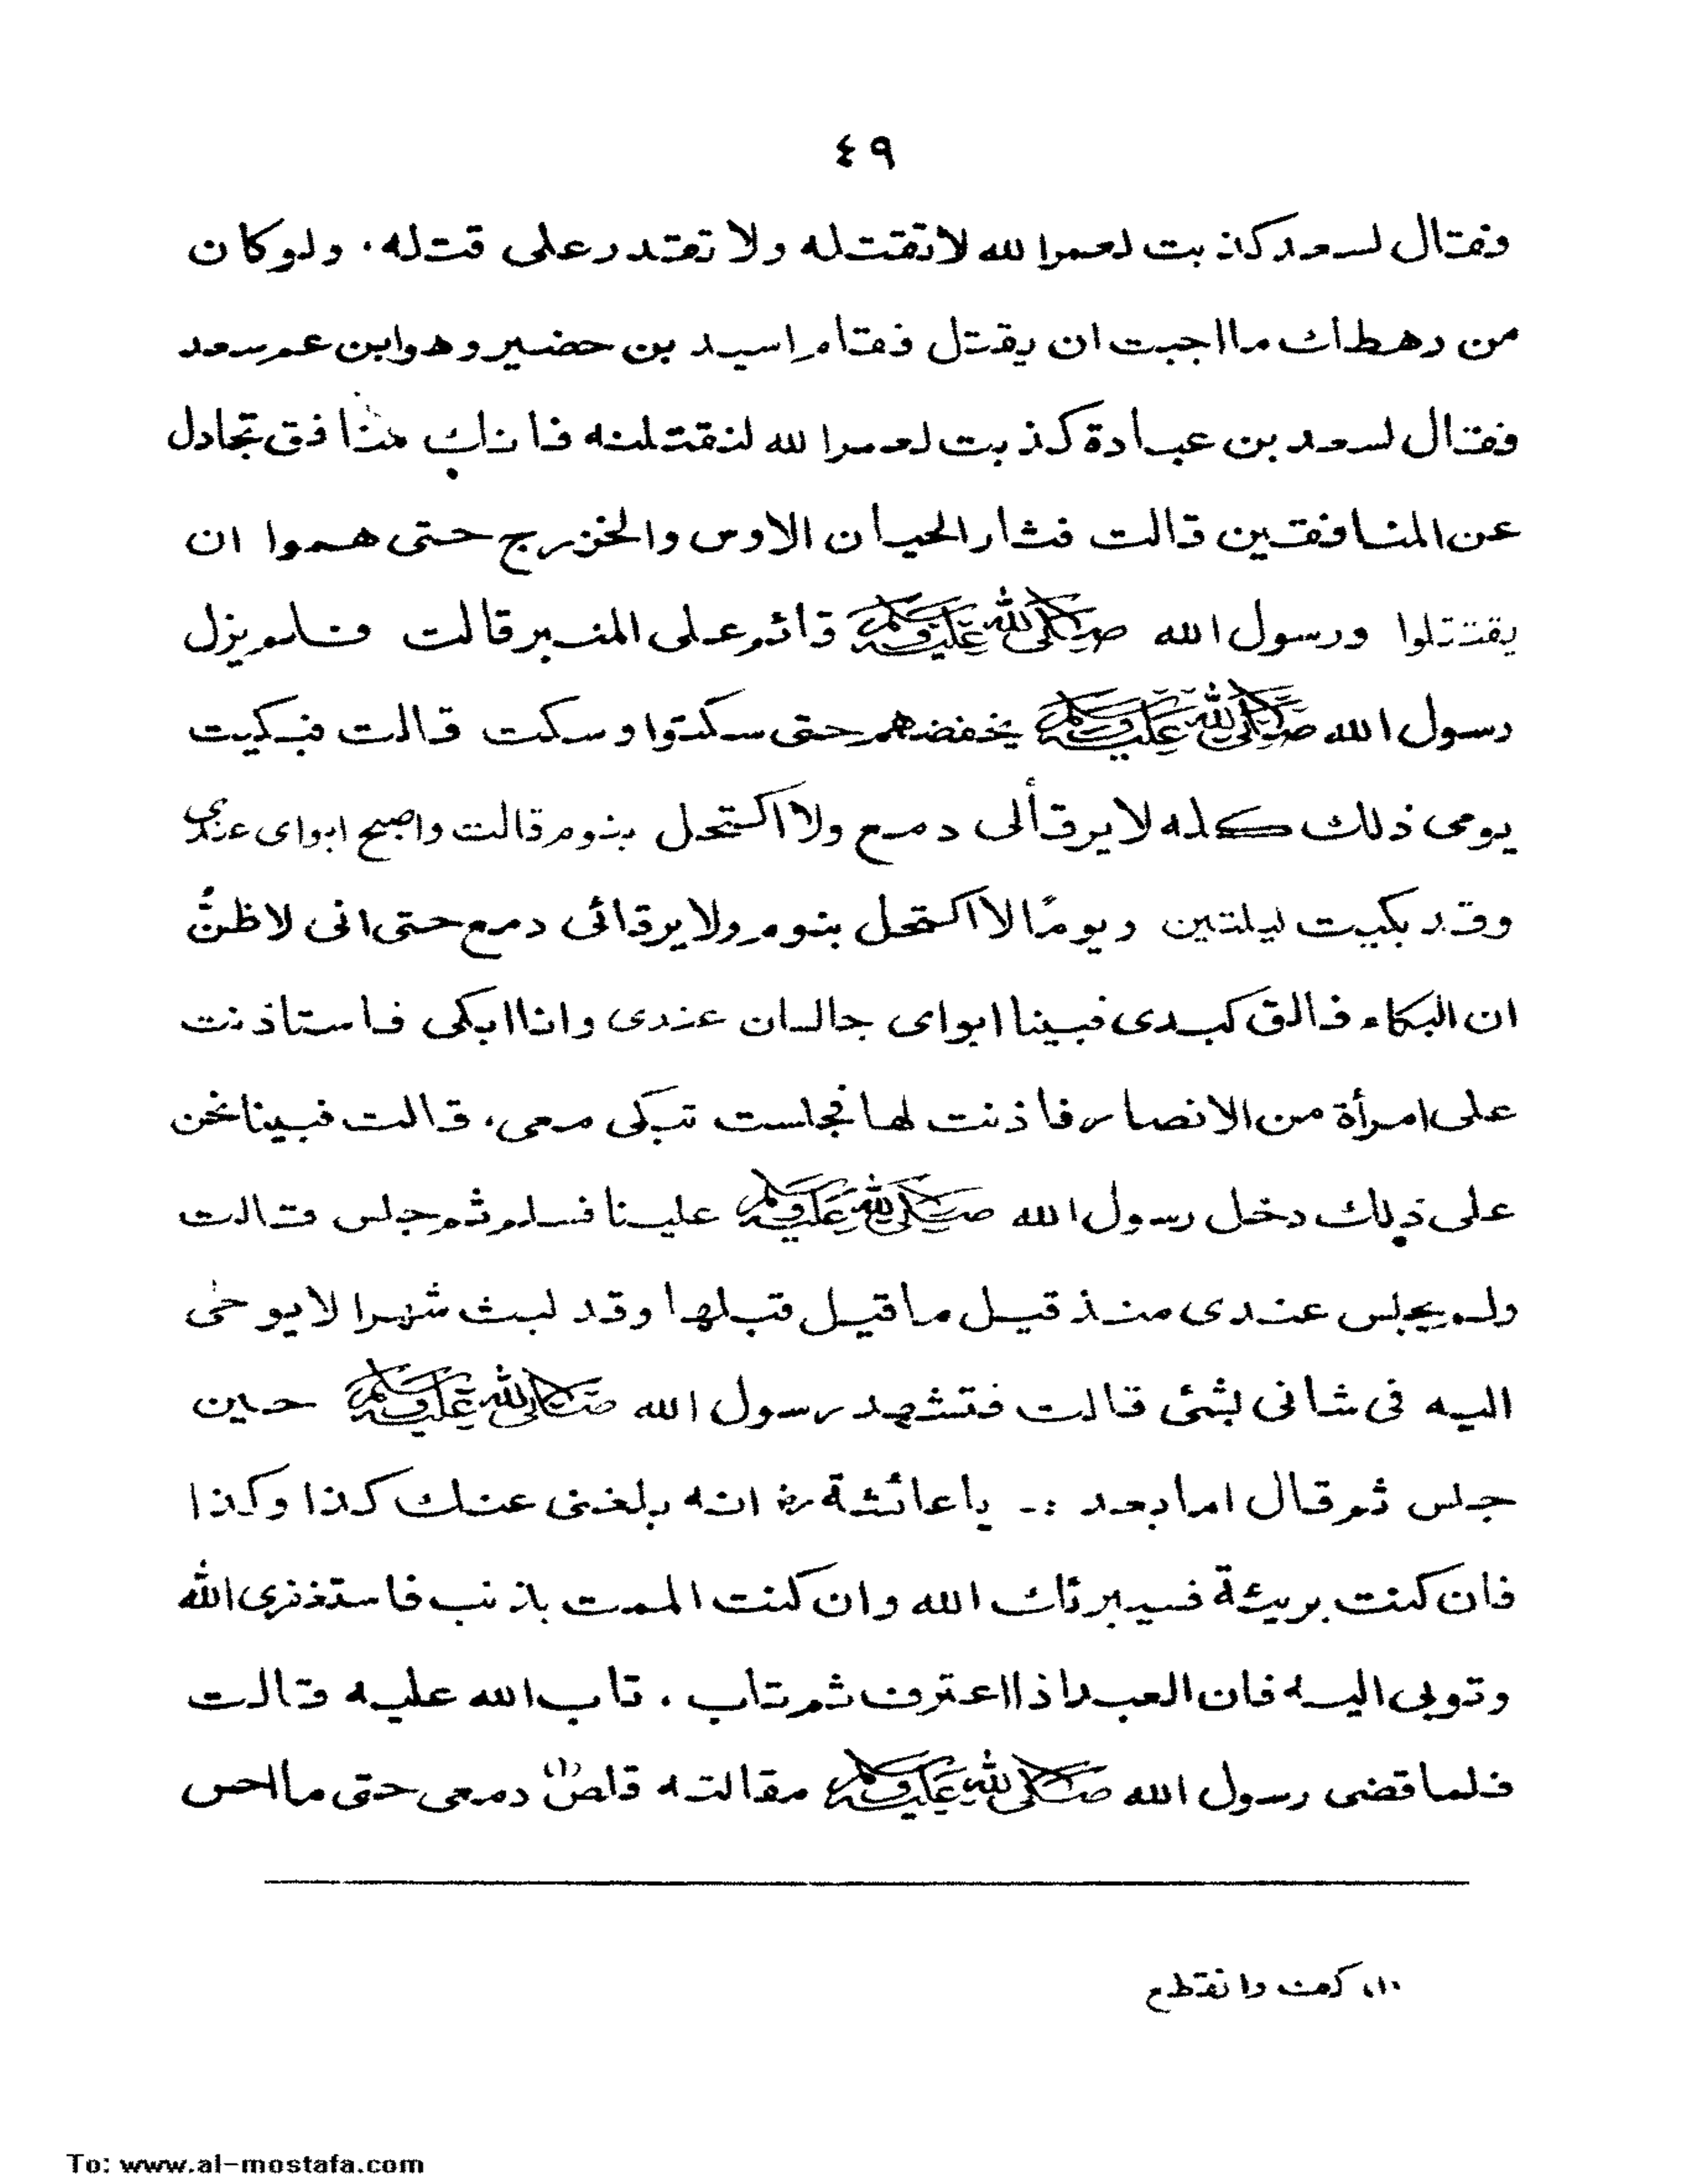 ٤٩
فقال لسعد كذبت لعمر الله لا تقتله ولا تقتدر على قتله. ولو كان
من رهطك ما اجبت ان يقتل فقام اسيد بن حضير وهو ابن عم سعد
فقال لسعد بن عبادة كذبت لعمر الله لنقتلنه فانك منافق تجادل
عن المنافقين قالت فثار الحيان الاوس والخزرج حتى هموا ان
يقتتلوا ورسول الله ﷺ قائم على المنبر قالت فلم يزل
رسول الله ﷺ يخفضهم حتى سكتوا وسكت قالت فبكيت
يومى ذلك كله لا يرقألى دمع ولا اكتحل بنوم قالت واصبح ابواى عندى
وقد بكيت ليلتين ويومًا لا اكتحل بنوم ولا يرقائى دمع حتى انى لاظنُّ
ان البكاء فالق كبدى فبينا ابواى جالسان عندى وانا ابكى فاستاذنت
على امرأة من الانصار فاذنت لها فجلست تبكى معى، قالت فبينا نحن
على ذلك دخل رسول الله ﷺ علينا فسلم ثم جلس قالت
ولم يجلس عندى منذ قيل ما قيل قبلها وقد لبث شهرا لا يوحٰى
اليه فى شانى بشئ قالت فتشهد رسول الله ﷺ حين
جلس ثم قال اما بعد :- يا عائشة رض انه بلغنى عنك كذا وكذا
فان كنت بريئة فسيبرئك الله وان كنت الممت بذنب فاستغفرى الله
وتوبى اليه فان العبد اذا اعترف ثم تاب. تاب الله عليه قالت
فلما قضى رسول الله ﷺ مقالته قلص (١) دمعى حتى ما احس
(١) كمن وانقطع
To: www.al-mostafa.com